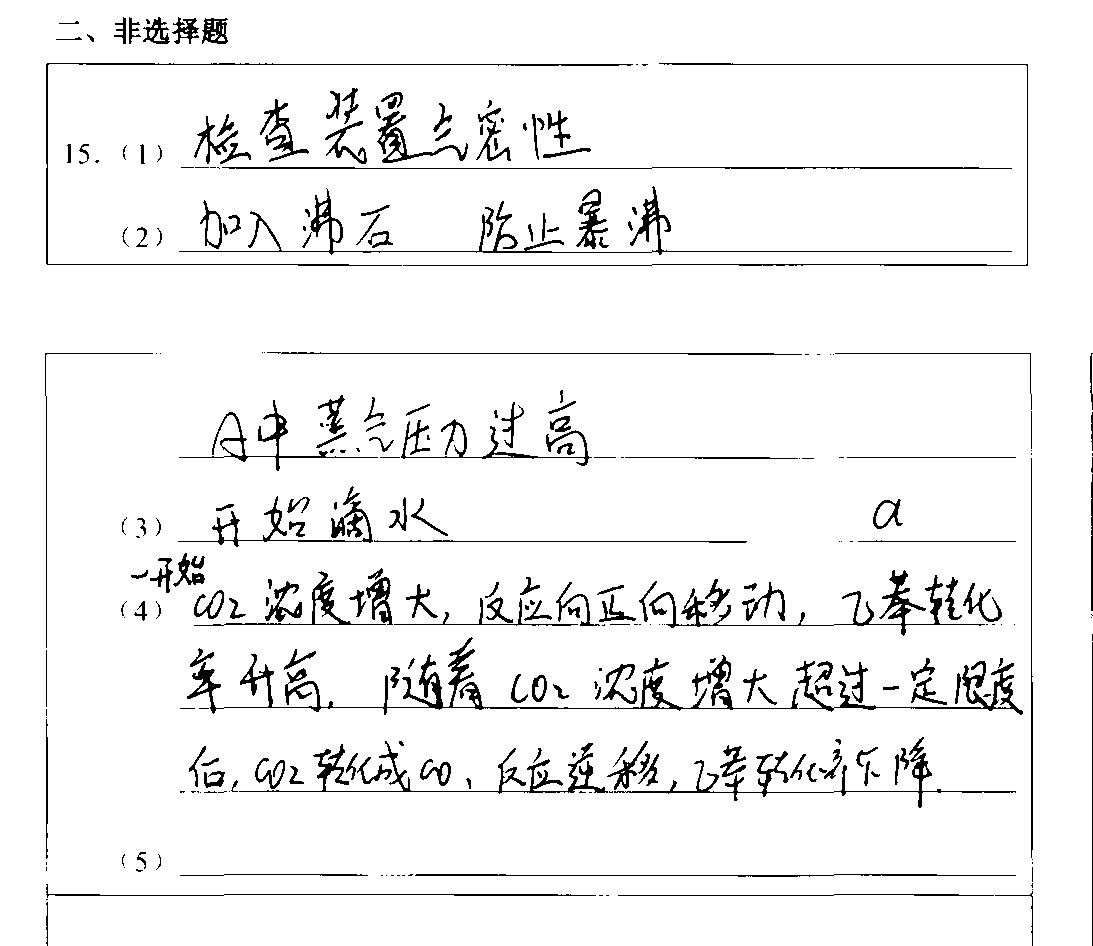 二、非选择题
15.（1）检查装置气密性
（2）加入沸石 防止暴沸
A中蒸气压力过高
（3）开始滴水 a
一开始
（4）CO2浓度增大，反应向正向移动，乙苯转化
率升高．随着CO2浓度增大超过一定限度
后，CO2转化成CO，反应逆移，乙苯转化率下降．
（5）